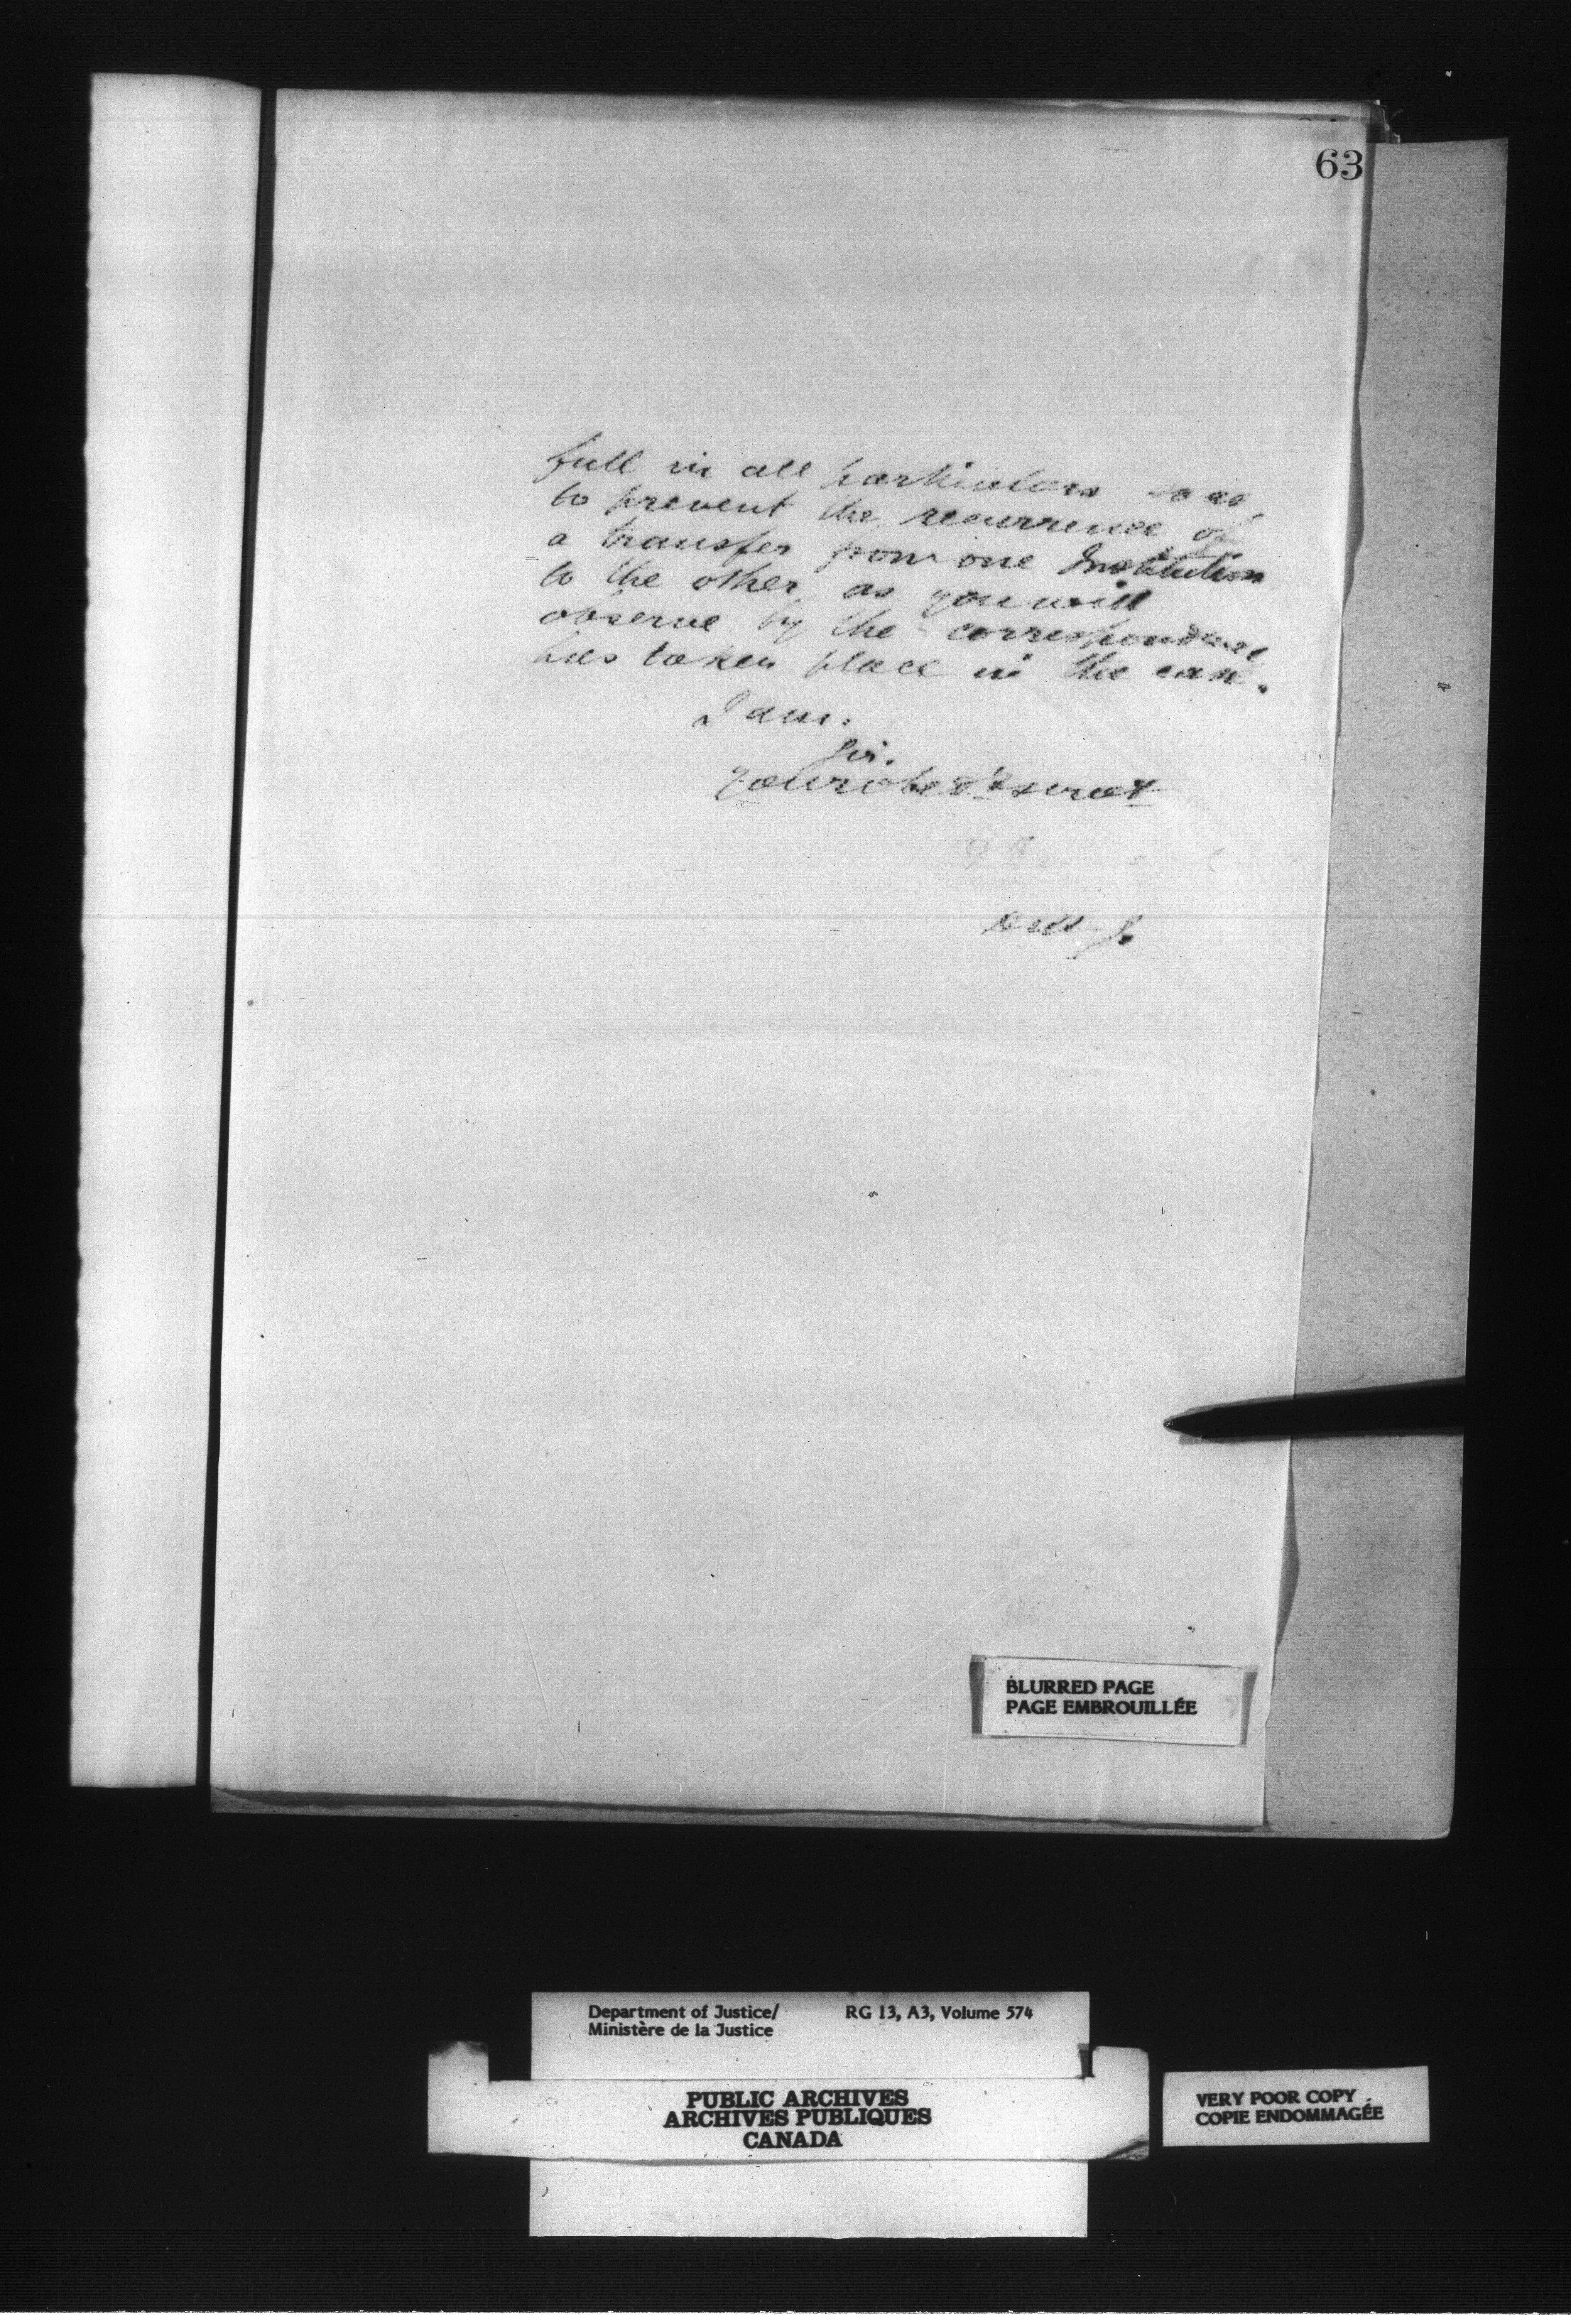 63
full in all particulars so as
to prevent the recurrence of
a transfer from one Institution
to the other, as you will
observe by the correspondence
has taken place in the case.
I am.
Sir.
Your obed't servt
BLURRED PAGE
PAGE EMBROUILLÉE
Department of Justice/ RG 13, A3, Volume 574
Ministère de la Justice
PUBLIC ARCHIVES
ARCHIVES PUBLIQUES
CANADA
VERY POOR COPY
COPIE ENDOMMAGÉE